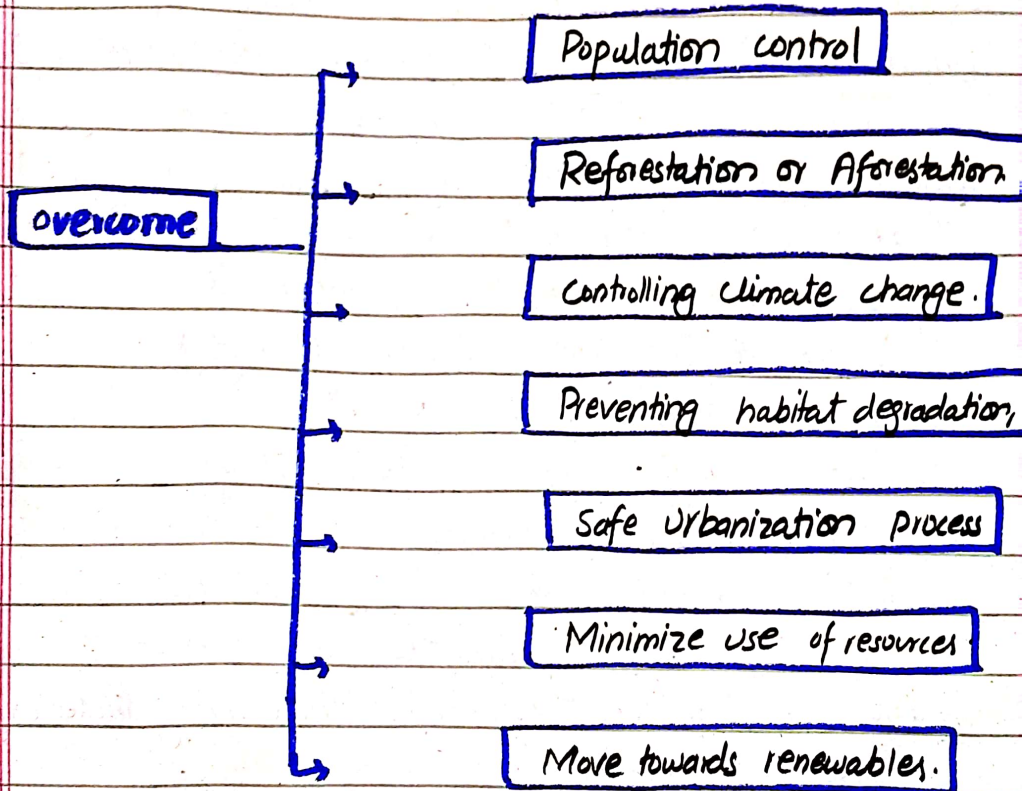 Population control
Reforestation or Aforestation.
overcome
Controlling climate change.
Preventing habitat degradation,
Safe Urbanization process
Minimize use of resources.
Move towards renewables.